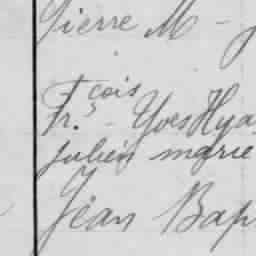 Pierre M -
Fçois
Fr.s - Yves Hya
julien marie
Jean Bap